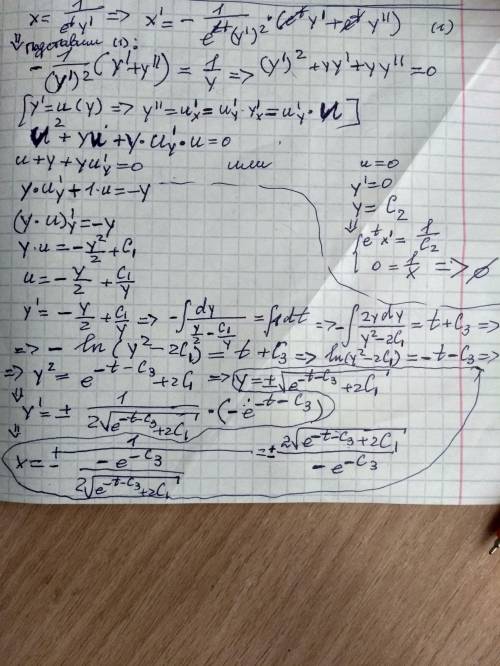 x = 1/(e^t y') => x' = - 1/(e^{2t}(y')^2) · (e^t y' + e^t y'') (1)
⇓ подставим (1):
- 1/(y')^2 (y' + y'') = 1/y => (y')^2 + yy' + yy'' = 0
[y' = u(y) => y'' = u'_x = u'_y · y'_x = u'_y · u]
u^2 + yu + y · u'_y · u = 0
u + y + yu'_y = 0 или u = 0
y · u'_y + 1 · u = -y y' = 0
(y · u)'_y = -y y = C_2
y · u = - y^2/2 + C_1 ⇓ { e^t x' = 1/C_2
u = - y/2 + C_1/y 0 = 1/x => ∅
y' = - y/2 + C_1/y => - ∫ dy/(y/2 - C_1/y) = ∫ 1 dt => - ∫ 2y dy/(y^2 - 2C_1) = t + C_3 =>
=> - ln(y^2 - 2C_1) = t + C_3 => ln(y^2 - 2C_1) = -t - C_3 =>
=> y^2 = e^{-t-C_3} + 2C_1 => y = ± √(e^{-t-C_3} + 2C_1)
⇓ y' = ± 1/(2√(e^{-t-C_3} + 2C_1)) · (-e^{-t-C_3})
⇓ x = ± 1/(-e^{-C_3}/(2√(e^{-t-C_3} + 2C_1))) = ± 2√(e^{-t-C_3} + 2C_1)/(-e^{-C_3})